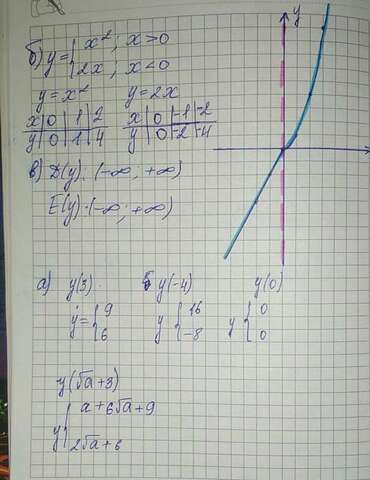 б) y = { x²; x > 0
2x; x < 0
y = x² y = 2x
x | 0 | 1 | 2 x | 0 | -1 | -2
y | 0 | 1 | 4 y | 0 | -2 | -4
в) D(y): (-∞; +∞)
E(y): (-∞; +∞)
y
а) y(3). y(-4) y(0)
y = { 9 y { 16 y { 0
6 -8 0
y(√a+3)
y { a + 6√a + 9
2√a + 6